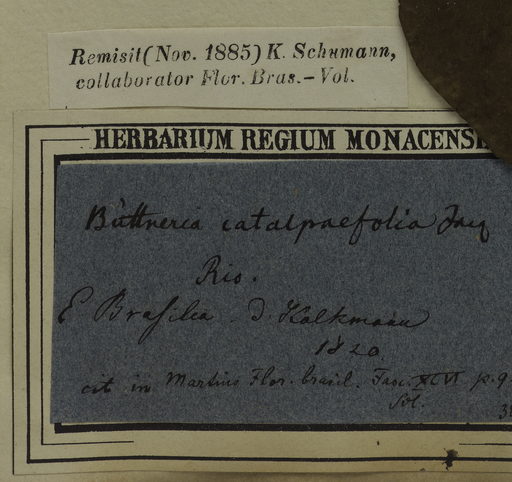 Remisit (Nov. 1885) K. Schumann,
collaborator Flor. Bras.-Vol.
HERBARIUM REGIUM MONACENSE
Büttneria catalpaefolia Jacq
Rio.
E Brasilia. D. Kalkmann
1820.
cit in Martius Flor. brasil. Fasc. XCVI p. 9